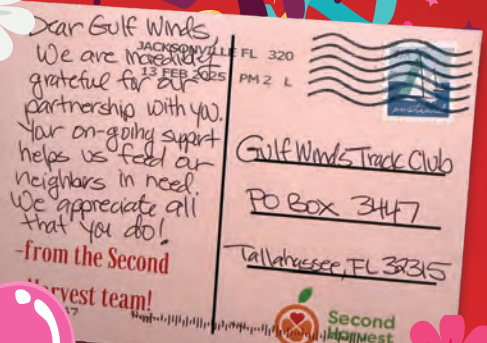 Dear Gulf Winds,
We are incredibly
grateful for our
partnership with you.
Your on-going support
helps us feed our
neighbors in need.
We appreciate all
that you do!
-from the Second
Harvest team!
JACKSONVILLE FL 320
13 FEB 2025 PM 2 L
Gulf Winds Track Club
PO Box 3447
Tallahassee, FL 32315
Second
Harvest